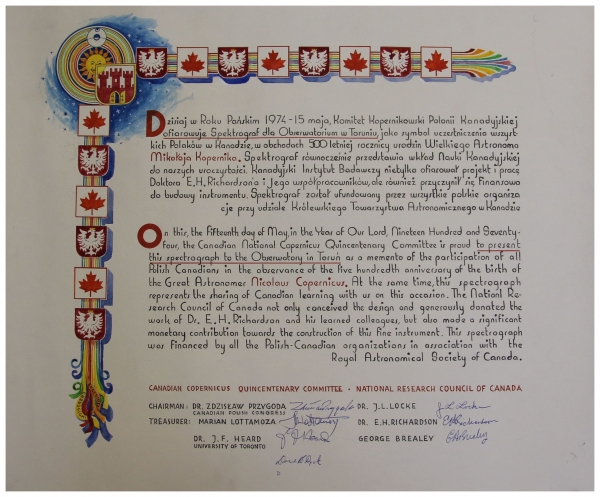 Dzisiaj w Roku Pańskim 1974-15 maja, Komitet Kopernikowski Polonii Kanadyjskiej
ofiarowuje Spektrograf dla Obserwatorium w Toruniu, jako symbol uczestniczenia wszyst-
kich Polaków w Kanadzie, w obchodach 500 letniej rocznicy urodzin Wielkiego Astronoma
Mikołaja Kopernika. Spektrograf równocześnie przedstawia wkład Nauki Kanadyjskiej
do naszych uroczystości. Kanadyjski Instytut Badawczy nietylko ofiarował projekt i pracę
Doktora E.H. Richardson'a i Jego współpracowników, ale również przyczynił się finansowo
do budowy instrumentu. Spektrograf został ufundowany przez wszystkie polskie organiza
cje przy udziale Królewskiego Towarzystwa Astronomicznego w Kanadzie
On this, the Fifteenth day of May, in the Year of Our Lord, Nineteen Hundred and Seventy-
four, the Canadian National Copernicus Quincentenary Committee is proud to present
this spectrograph to the Observatory in Toruń as a memento of the participation of all
Polish Canadians in the observance of the five hundredth anniversary of the birth of
the Great Astronomer Nicolaus Copernicus. At the same time, this spectrograph
represents the sharing of Canadian learning with us on this occasion. The Nationl Re-
search Council of Canada not only conceived the design and generously donated the
work of Dr. E. H. Richardson and his learned colleagues, but also made a significant
monetary contribution towards the construction of this fine instrument. This spectrograph
was financed by all the Polish-Canadian organizations in association with the
Royal Astronomical Society of Canada.
CANADIAN COPERNICUS QUINCENTENARY COMMITTEE - NATIONAL RESEARCH COUNCIL OF CANADA
CHAIRMAN: DR. ZDZISŁAW PRZYGODA DR. J.L. LOCKE J. L. Locke
CANADIAN POLISH CONGRESS
TREASURER: MARIAN LOTTAMOZA DR. E.H. RICHARDSON EHRichardson
DR. J.F. HEARD GEORGE BREALEY GABrealey
UNIVERSITY OF TORONTO